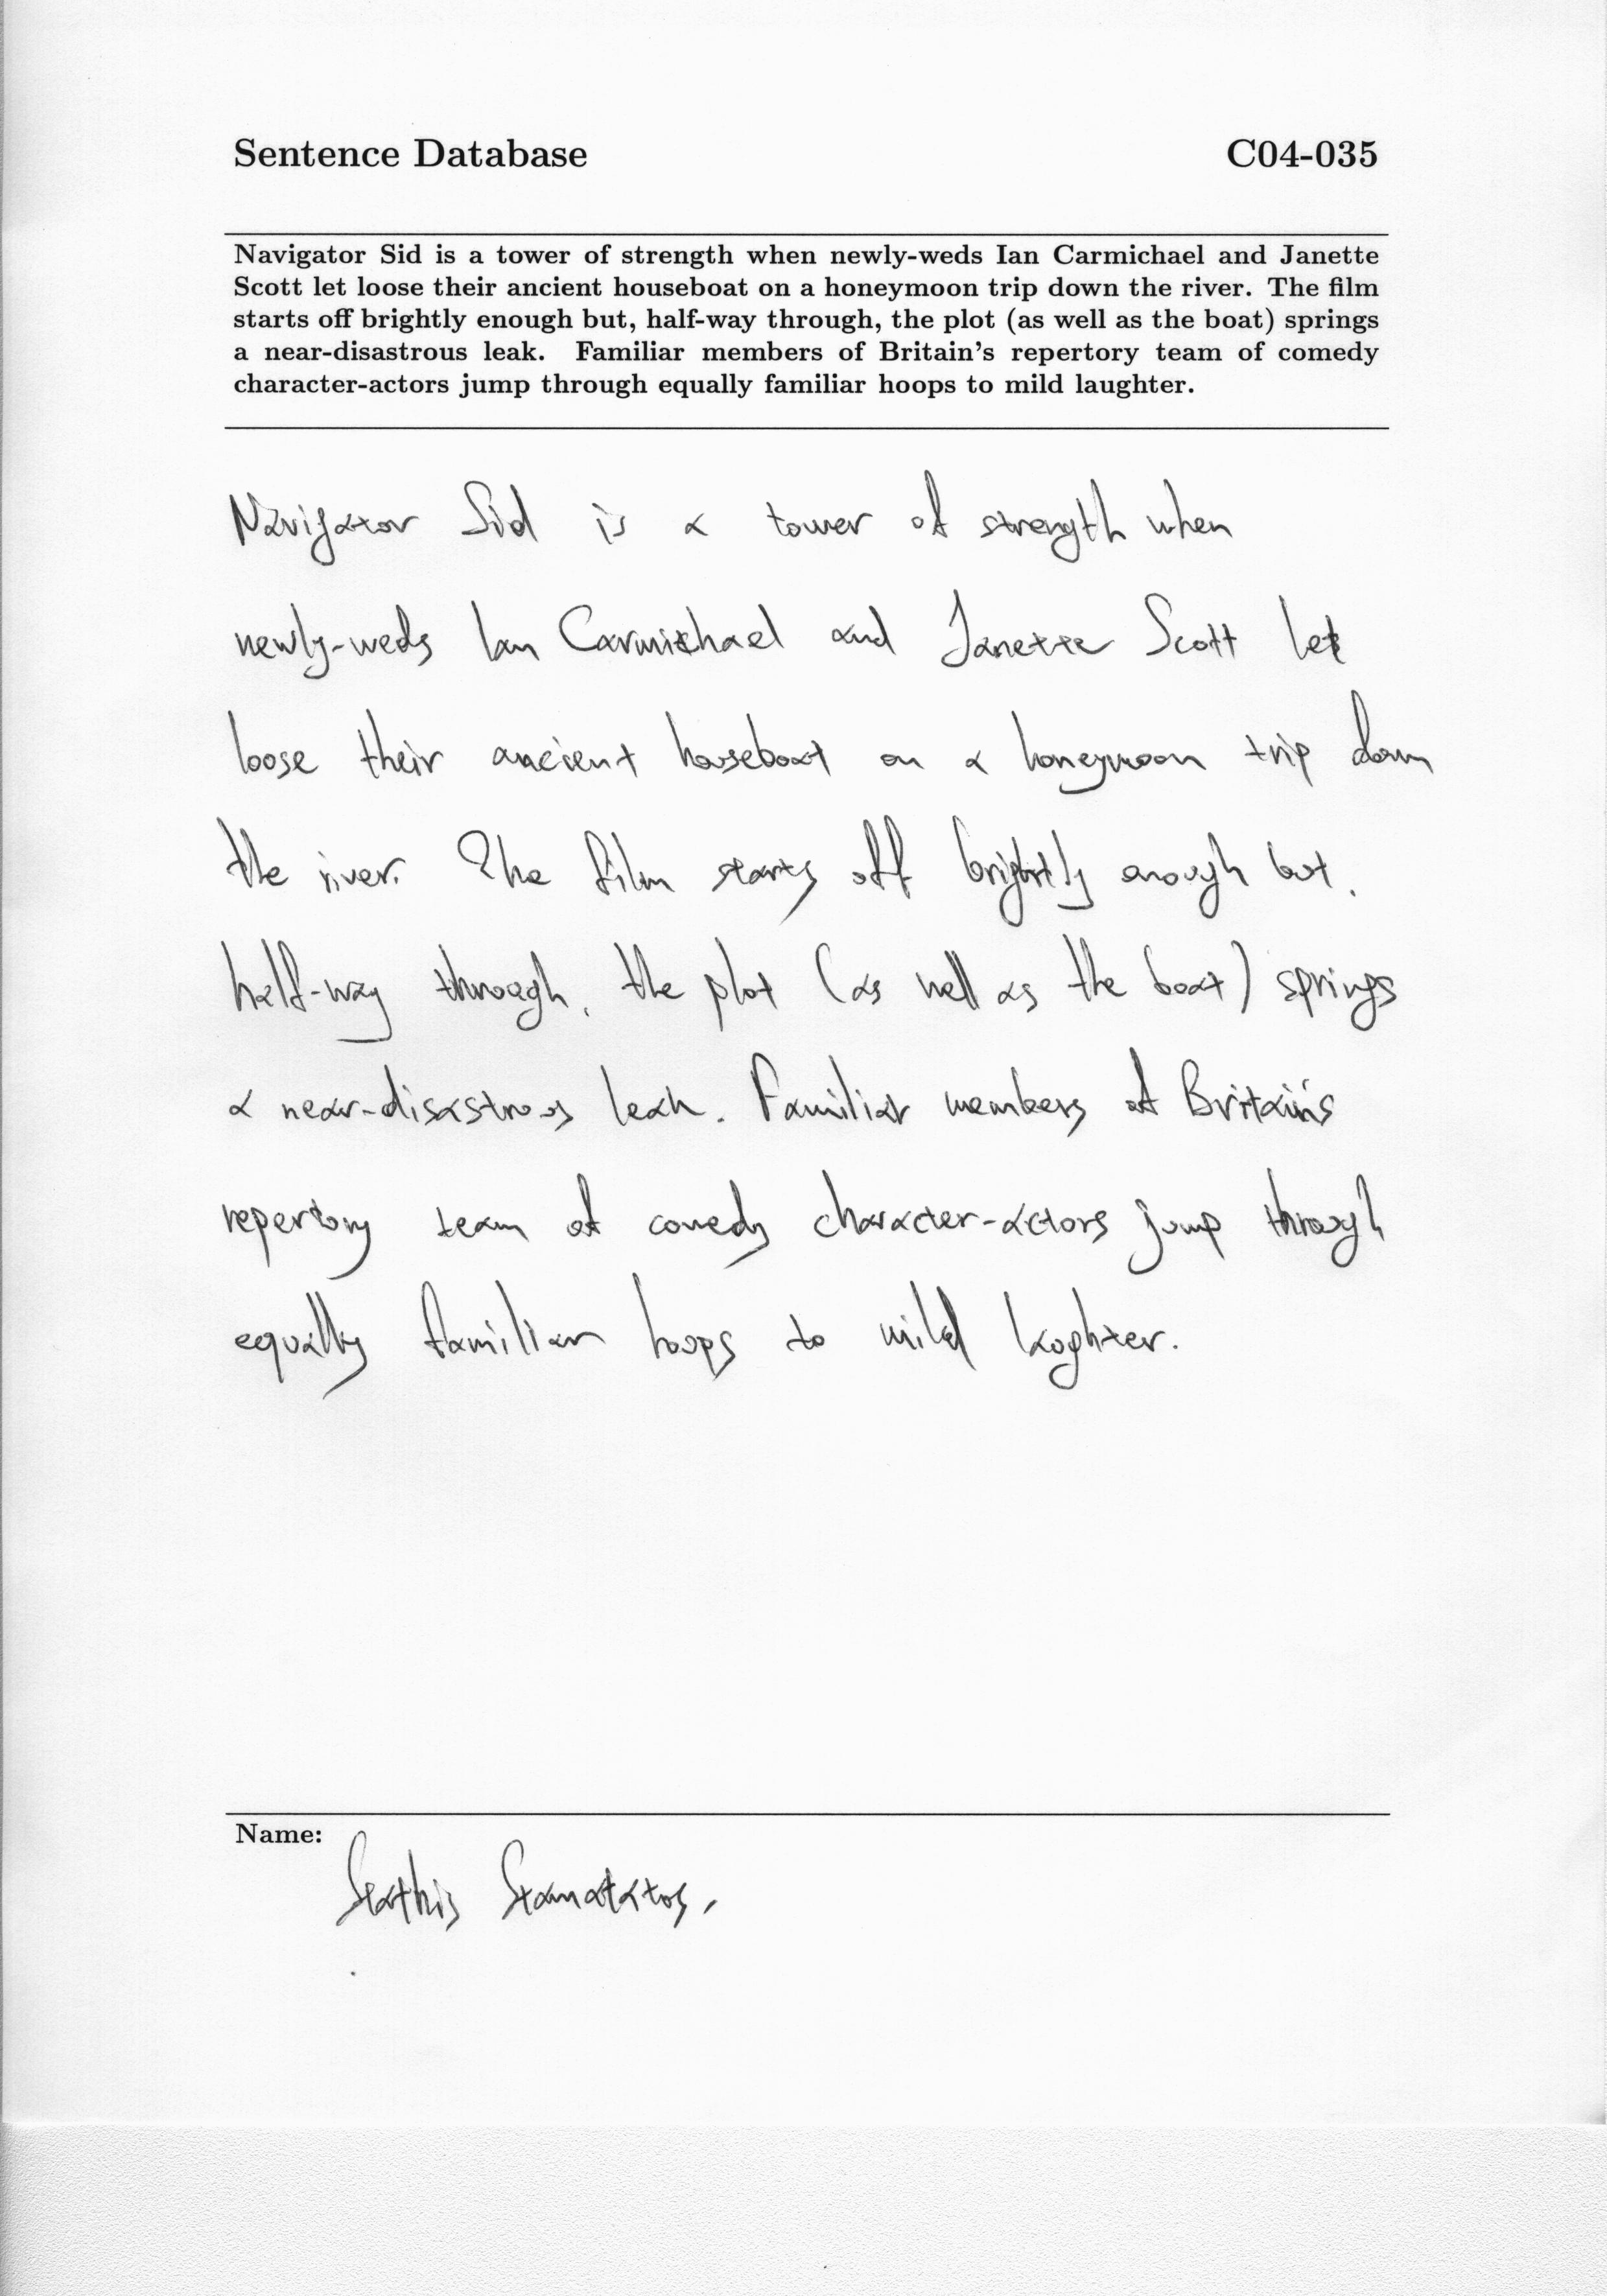 Sentence Database C04-035
Navigator Sid is a tower of strength when newly-weds Ian Carmichael and Janette
Scott let loose their ancient houseboat on a honeymoon trip down the river. The film
starts off brightly enough but, half-way through, the plot (as well as the boat) springs
a near-disastrous leak. Familiar members of Britain's repertory team of comedy
character-actors jump through equally familiar hoops to mild laughter.
Navigator Sid is a tower of strength when
newly-weds Ian Carmichael and Janette Scott let
loose their ancient houseboat on a honeymoon trip down
the river. The film starts off brightly enough but,
half-way through, the plot (as well as the boat) springs
a near-disastrous leak. Familiar members of Britain's
repertory team of comedy character-actors jump through
equally familiar hoops to mild laughter.
Name:
Stathis Stamatatos,